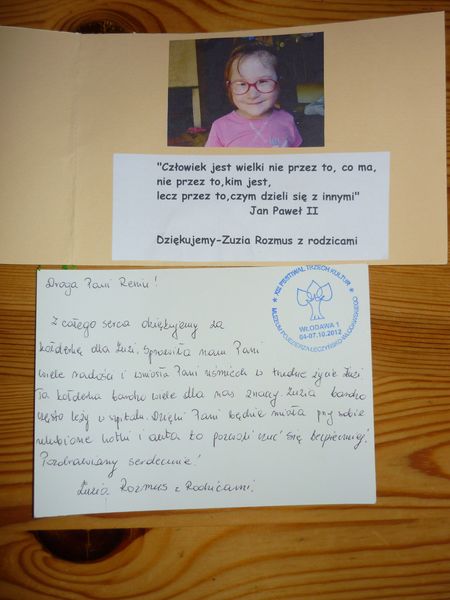 "Człowiek jest wielki nie przez to, co ma,
nie przez to,kim jest,
lecz przez to,czym dzieli się z innymi"
Jan Paweł II
Dziękujemy-Zuzia Rozmus z rodzicami
XIII FESTIWAL TRZECH KULTUR
WŁODAWA 1
04-07.10.2012
MUZEUM POJEZIERZA ŁĘCZYŃSKO-WŁODAWSKIEGO
Droga Pani Reniu!
Z całego serca dziękujemy za
kołderkę dla Zuzi. Sprawiła nam Pani
wiele radości i wniosła Pani uśmiech w trudne życie Zuzi
Ta kołderka bardzo wiele dla nas znaczy. Zuzia bardzo
często leży w szpitalu. Dzięki Pani będzie miała przy sobie
ulubione kotki i auta to pozwoli czuć się bezpieczniej!
Pozdrawiamy serdecznie!
Zuzia Rozmus z Rodzicami.